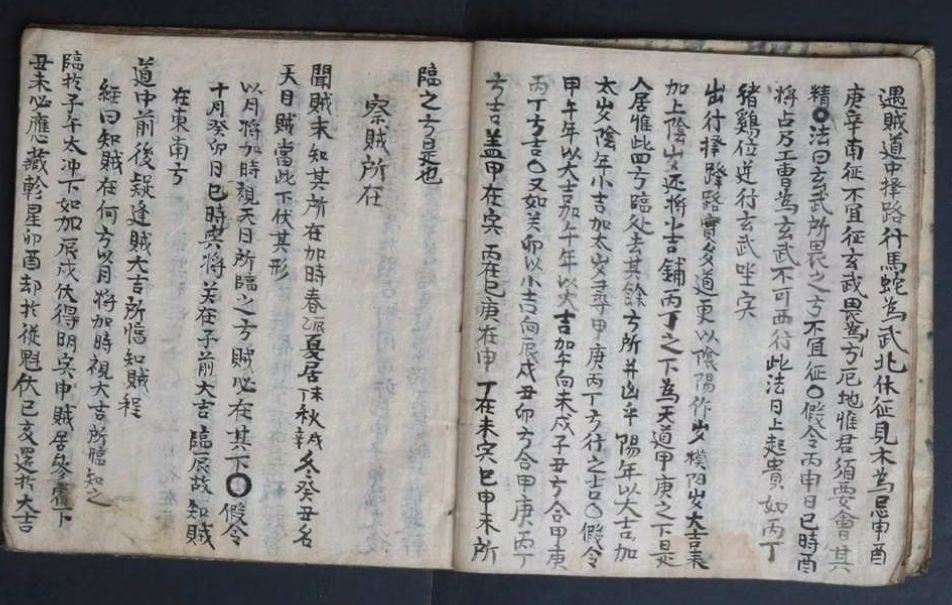 遇賊道中擇路行馬蛇為武北休征見木為忌申酉
庚辛南征不宜征玄武畏為方厄地惟君須要會其
精〇法曰玄武所畏之方不宜征〇假令丙申日巳時酉
將占乃工曹為玄武不可西行此法日上起貴如丙丁
猪鷄位逆行玄武坐寅
出行擇路實多道更以陰陽作歲模陽歲大吉表
加上陰歲还將小吉鋪丙丁之下為天道甲庚之下是
人居惟此四方臨处去其餘方所并凶乎陽年以大吉加
太歲陰年小吉加太歲尋甲庚丙丁方行之吉〇假令
甲午年以大吉加午年以大吉加午向未戌子丑方合甲庚
丙丁方吉〇又如关卯以小吉向辰戌丑卯方合甲庚丙丁
方吉盖甲在寅丙在巳庚在申丁在未寅巳申未所
臨之方是也
察賊所在
聞賊未知其所在加時春乙辰夏居丁未秋辛戌冬癸丑名
天目賊當此下伏其形
以月將加時視天目所臨之方賊必在其下〇假令
十月癸卯日巳時寅將关在子前大吉臨辰故知賊
在東南方
道中前後疑逢賊大吉所臨知賊程
經曰知賊在何方以月將加時視大吉所臨知之
臨於子午太冲下如加辰戌伏得明寅申賊居参下
丑未必應藏斡星卯酉却於從魁伏巳亥還於大吉